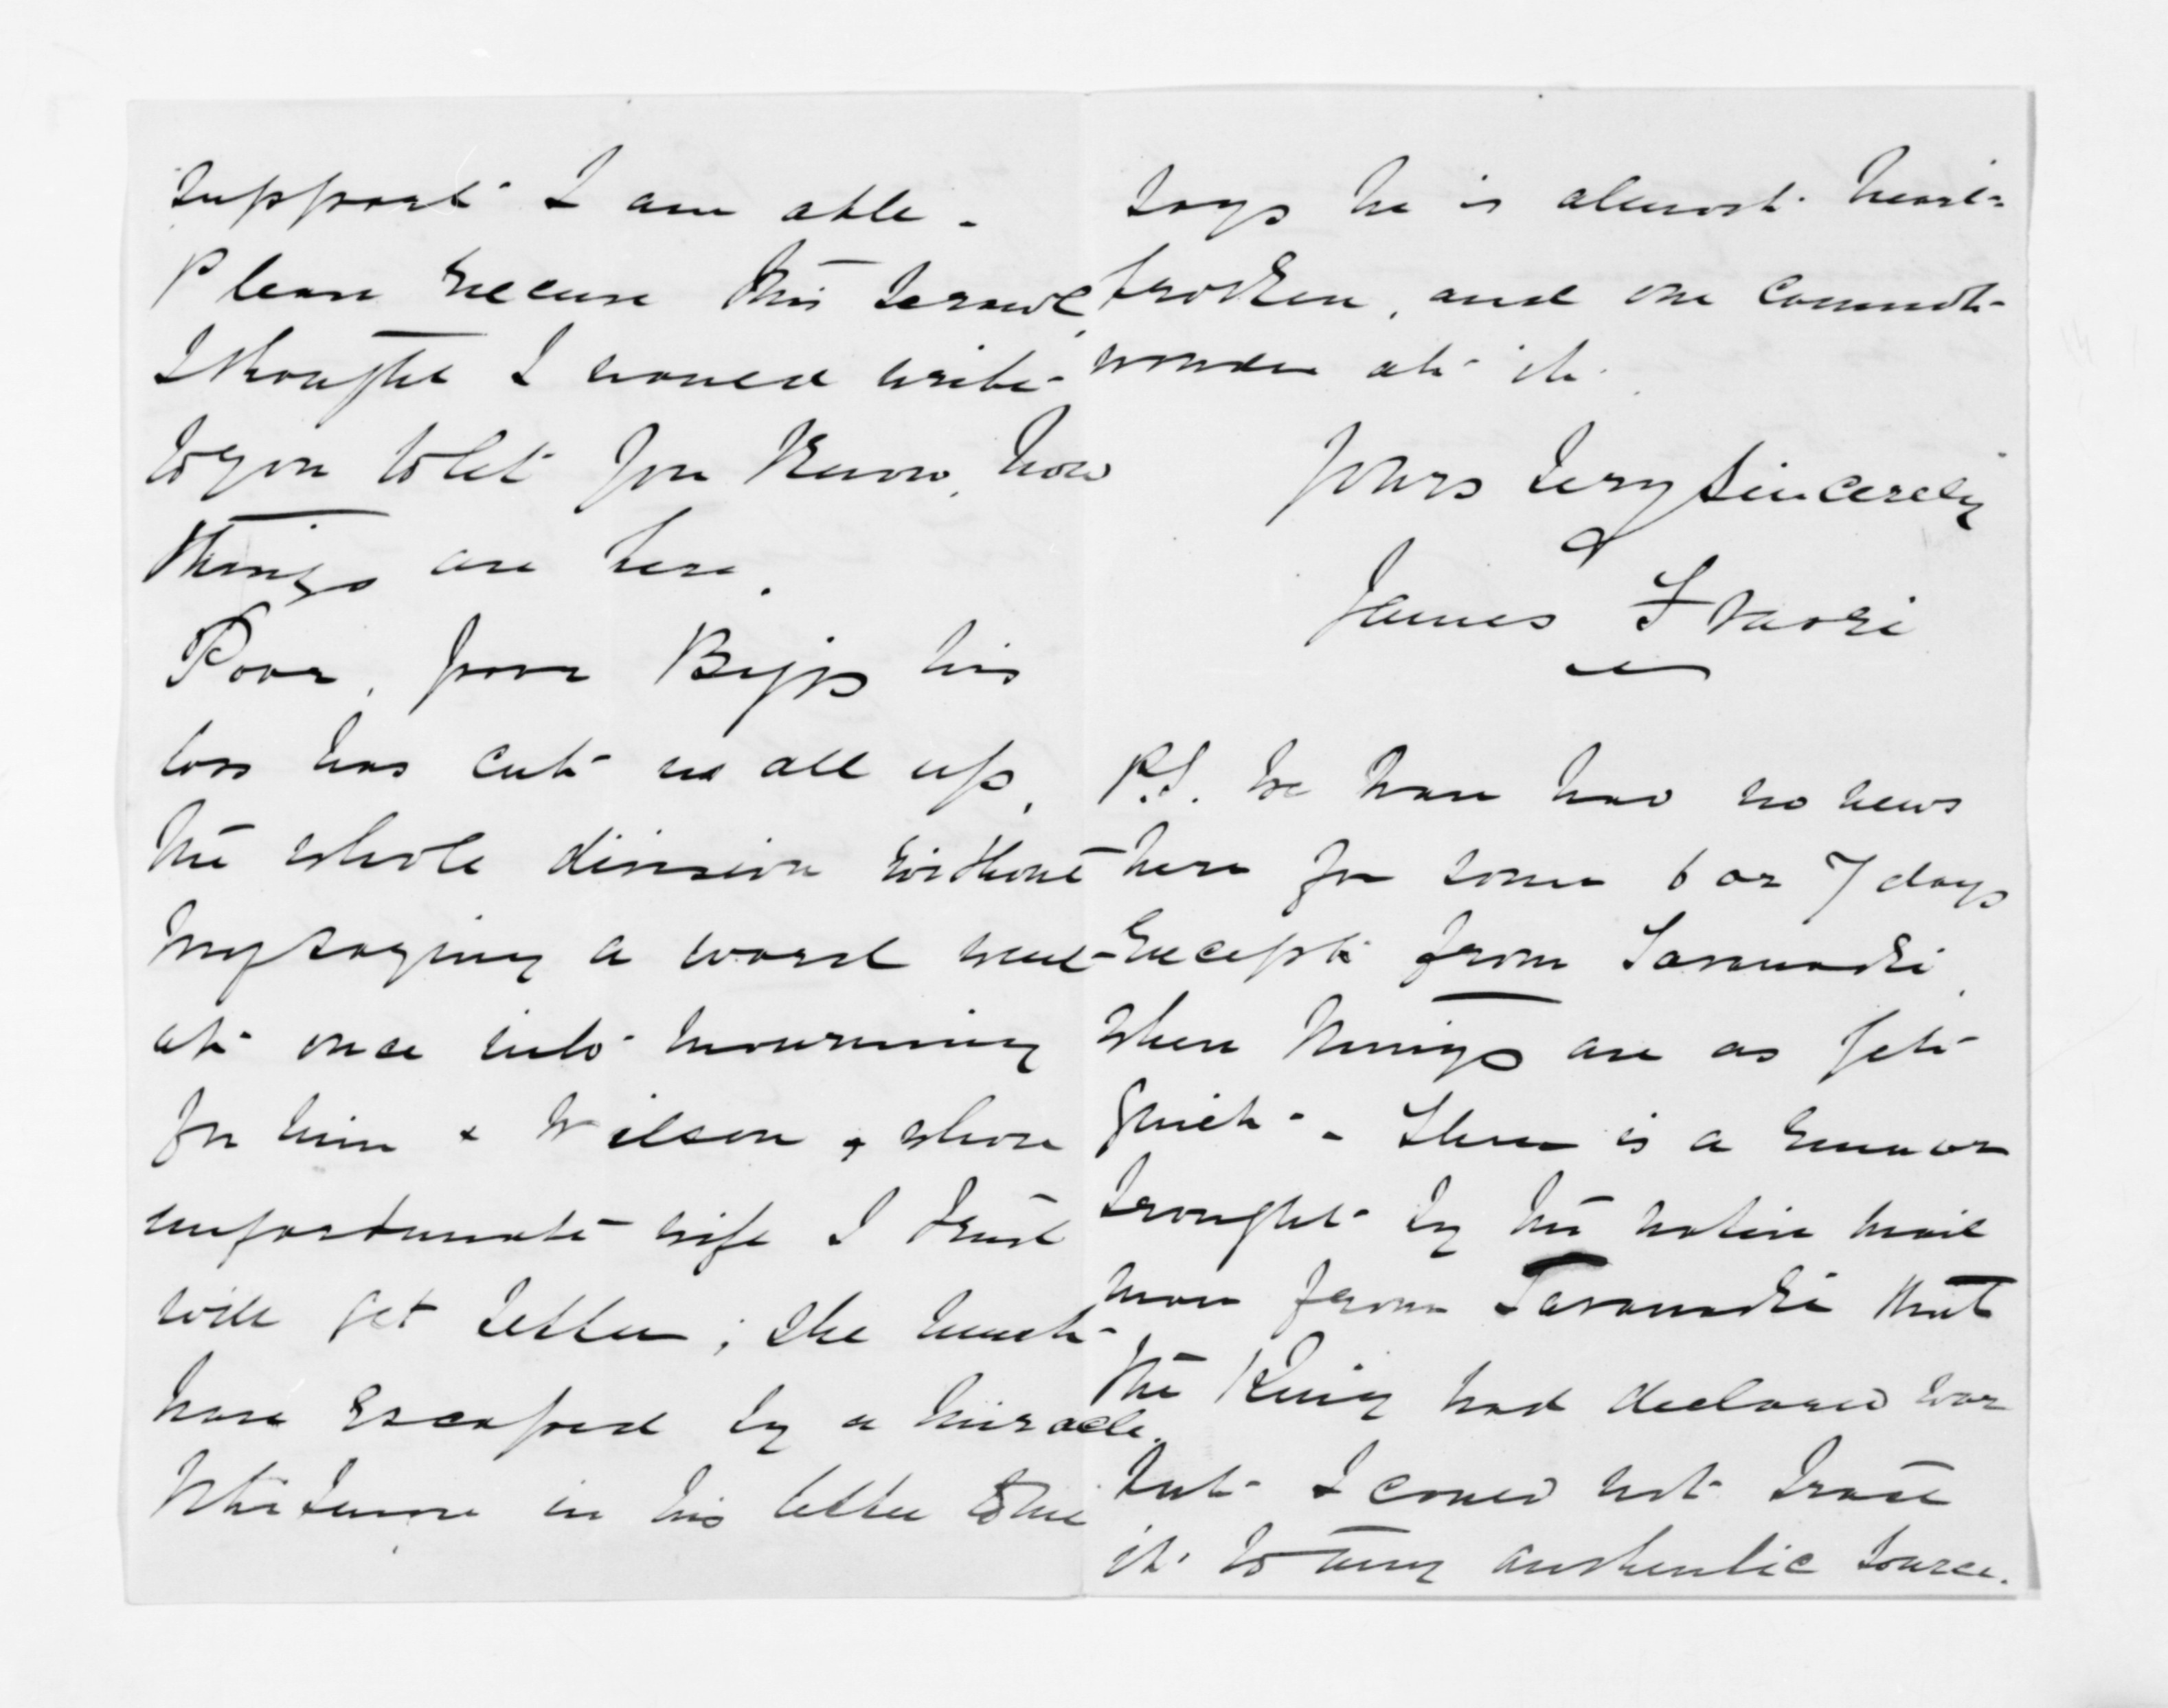 support I am able -
Please excuse this scrawl,
I thought I would write
to you to let you know, how
things are here.
Poor, poor Biggs his
loss has cut us all up,
the whole division without
my saying a word went
at once into mourning
for him & Wilson, whose
unfortunate wife I trust
will get better; she must
have escaped by a miracle.
Whitmore in his letter to me
says he is almost heart-
broken, and one cannot
wonder at it.
Yours very sincerely
James
P.S. We have had no news
here for some 6 or 7 days
except from Taranaki,
where things are as yet
quiet. - There is a rumor
brought by the native mail
man from Taranaki that
the King had declared war
but I could not trace
it to any authentic source.